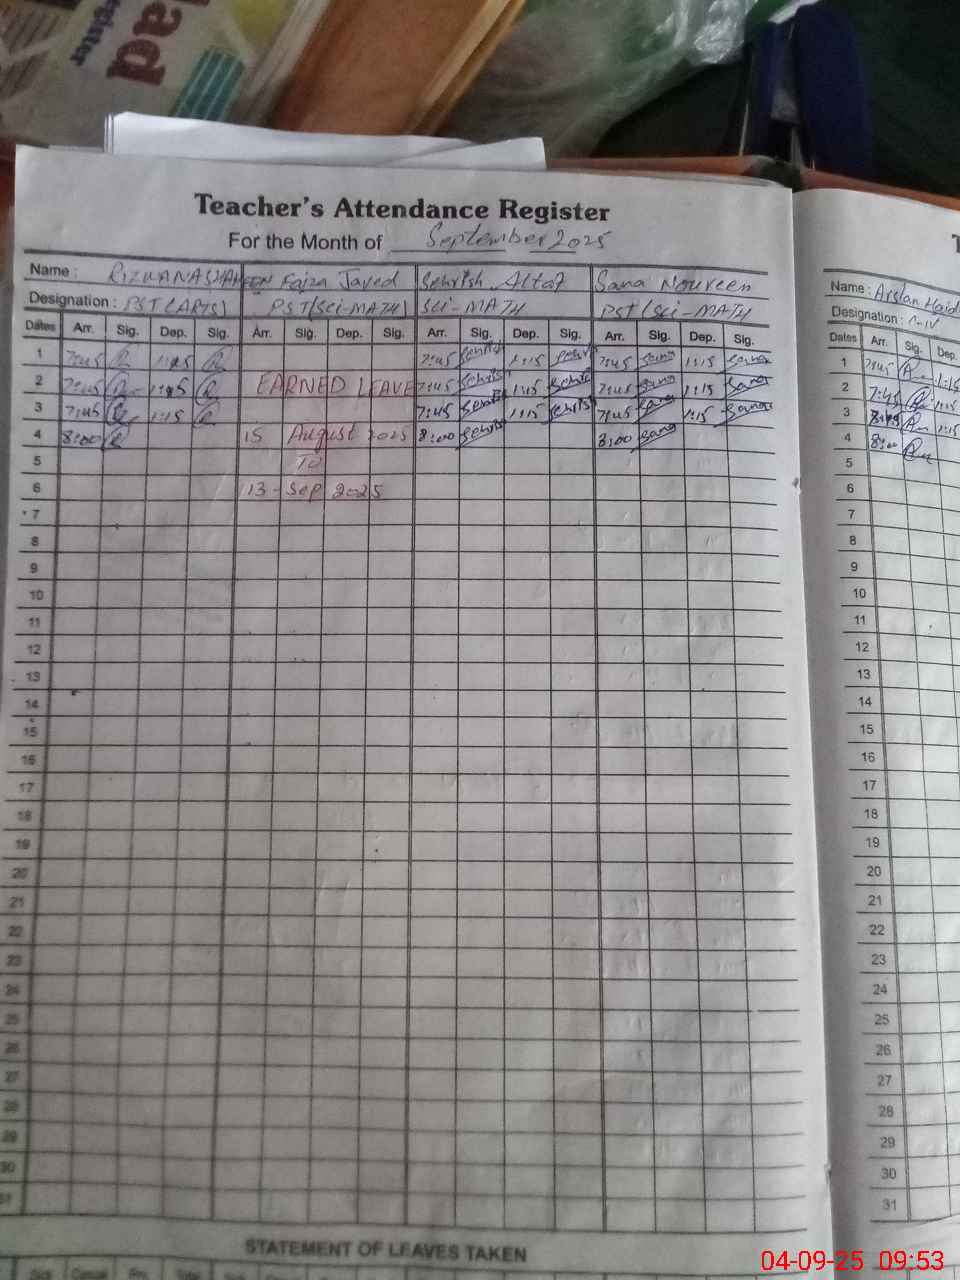 Register
ad
Teacher's Attendance Register
For the Month of September 2025
Name : RIZWANA SHAHEEN Faiza Javed Sehrish Altaf Sana Noureen
Designation : PST (ARTS) PST (Sci-MATH) Sci-MATH PST (Sci-MATH)
Dates Arr. Sig. Dep. Sig. Arr. Sig. Dep. Sig. Arr. Sig. Dep. Sig. Arr. Sig. Dep. Sig.
1 7:45 1:15 7:45 Sehrish 1:15 Sehrish 7:45 Sana 1:15 Sana
2 7:45 1:15 EARNED LEAVE 7:45 Sehrish 1:15 Sehrish 7:45 Sana 1:15 Sana
3 7:45 1:15 7:45 Sehrish 1:15 Sehrish 7:45 Sana 1:15 Sana
4 8:00 15 August 2025 8:00 Sehrish 8:00 Sana
5 TO
6 13-Sep 2025
7
8
9
10
11
12
13
14
15
16
17
18
19
20
21
22
23
24
25
26
27
28
29
30
31
STATEMENT OF LEAVES TAKEN
Name : Arslan Haid
Designation : C-IV
Dates Arr. Sig. Dep.
1 7:45 1:15
2 7:45 1:15
3 1:15
4 8:00
5
6
7
8
9
10
11
12
13
14
15
16
17
18
19
20
21
22
23
24
25
26
27
28
29
30
31
04-09-25 09:53